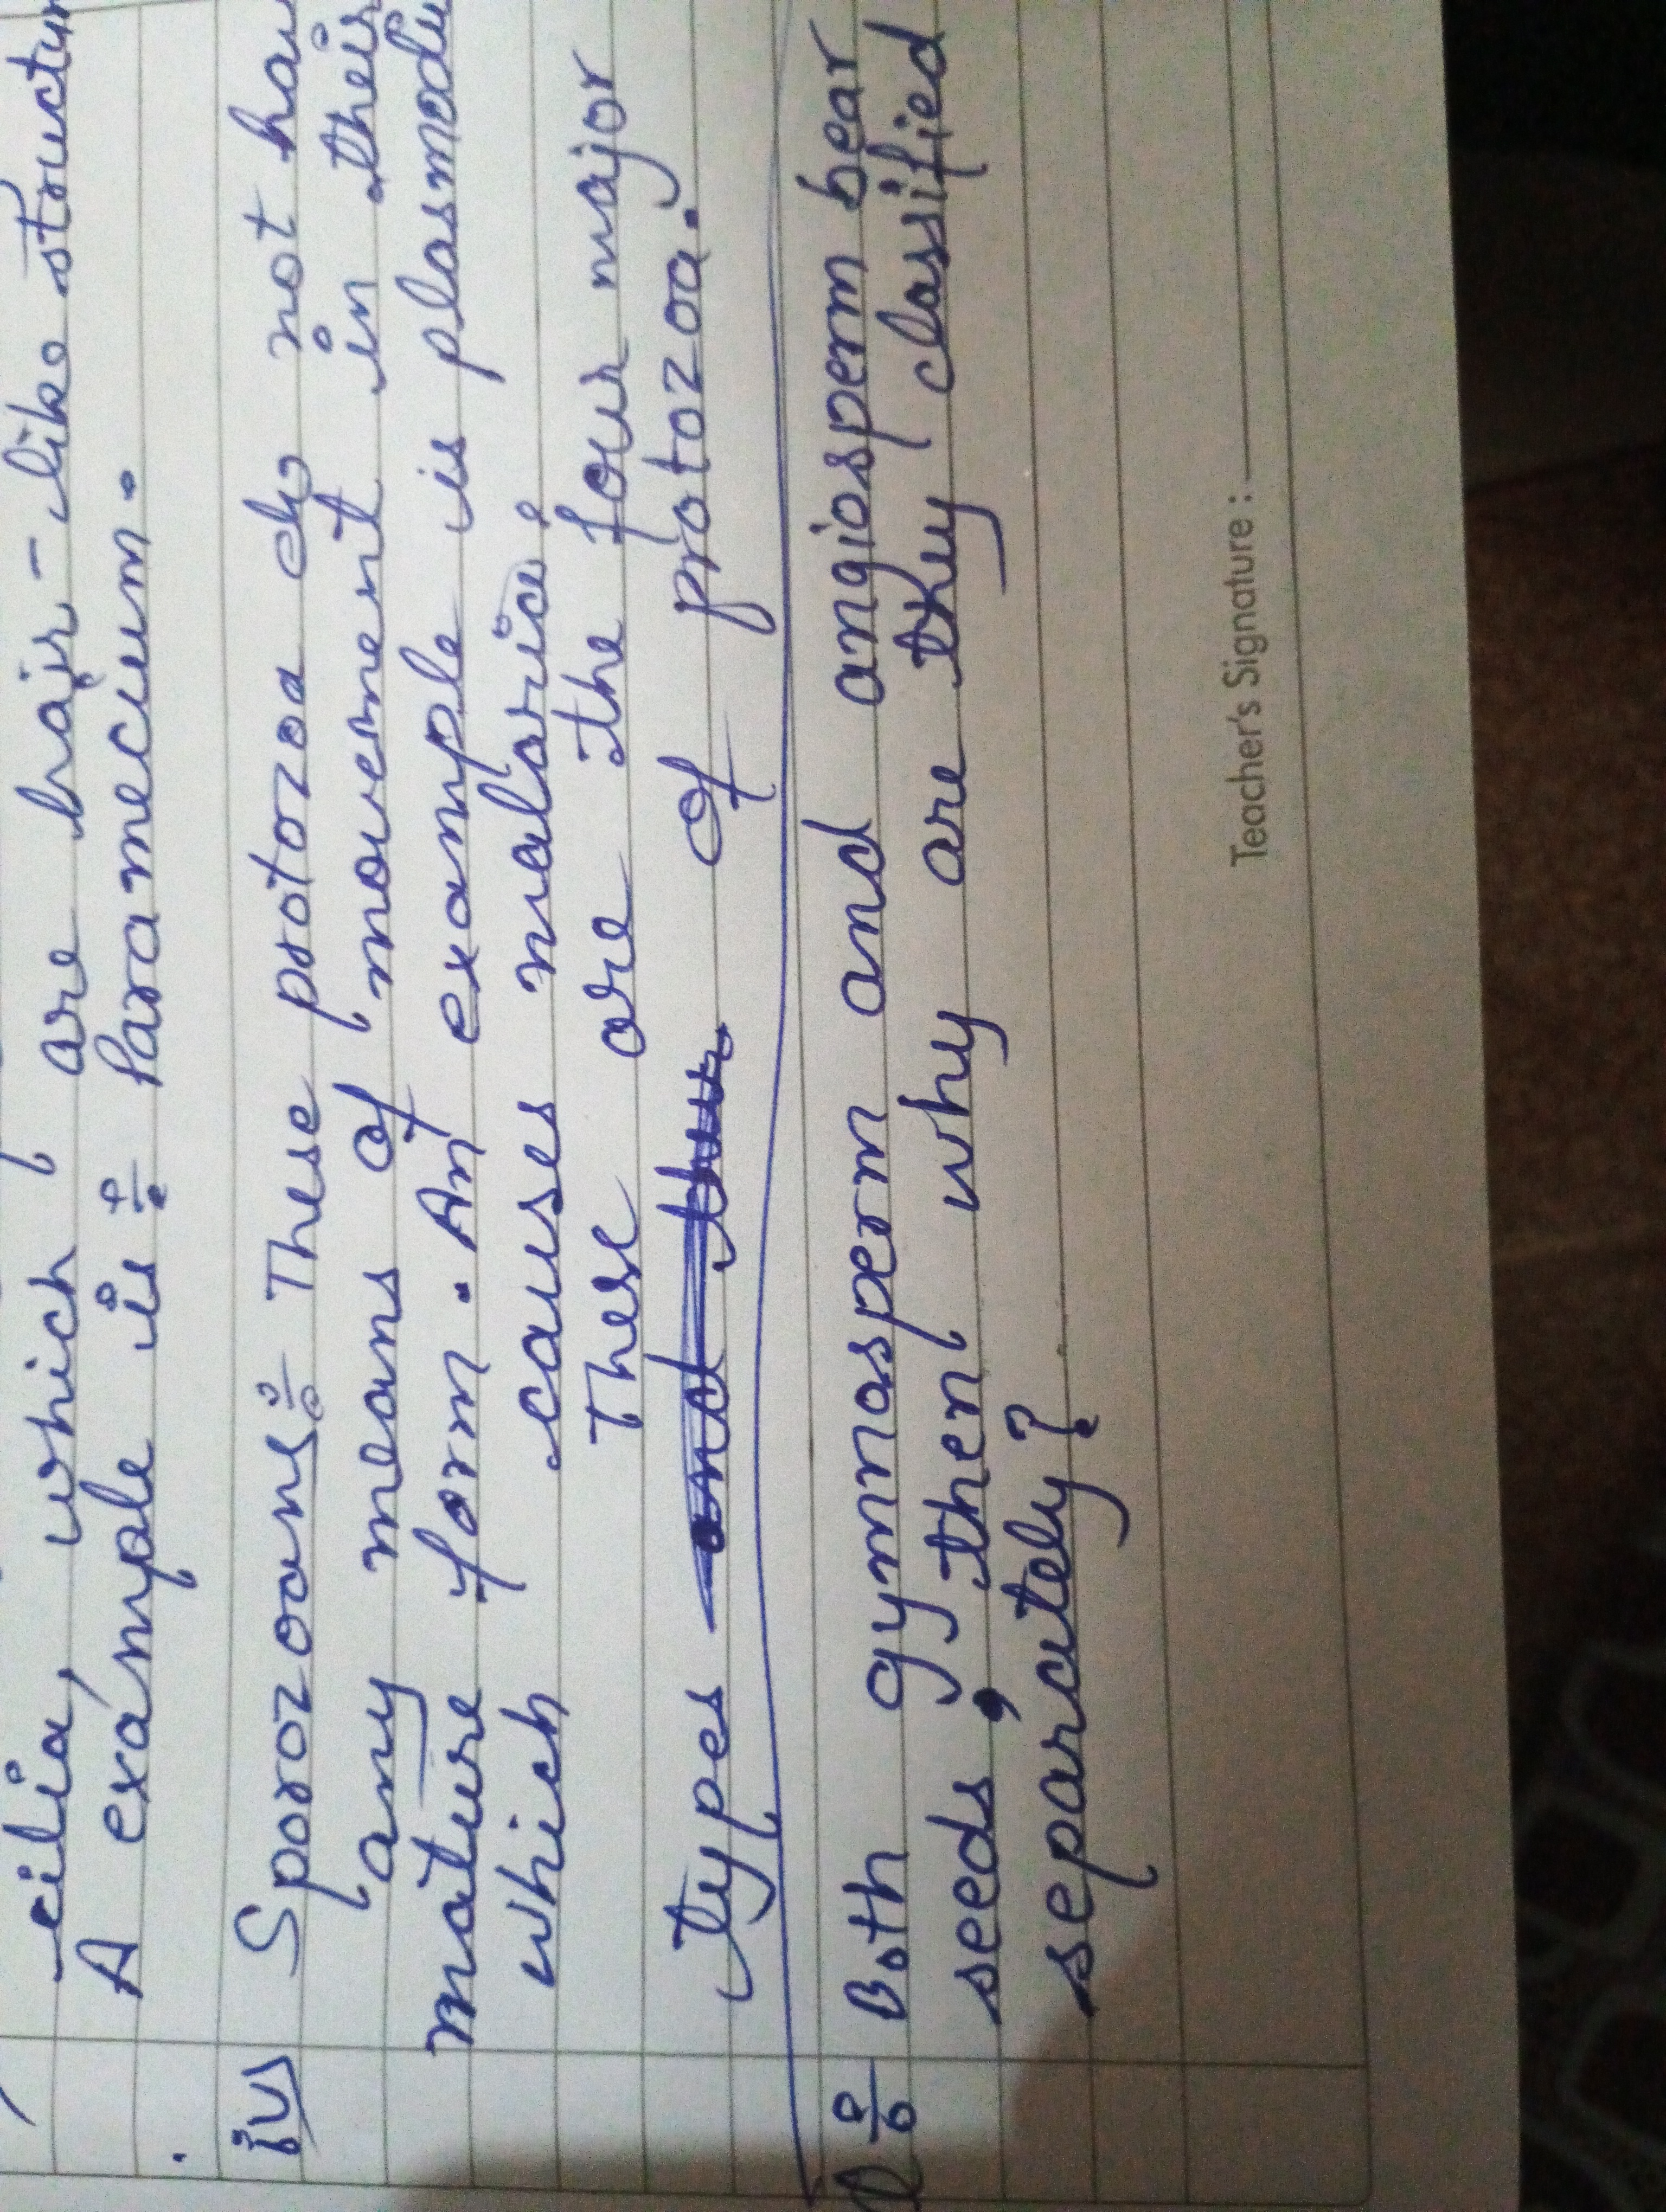 cilia, which are hair-like
A example is ÷ Paramecium.
iv) Sporozoans ÷ These protozoa do not
any means of movement in their
mature form. An example is
which causes malaria.
These are the four major
types of protozoa.
Q ÷ Both gymnosperm and angiosperm bear
seeds, then why are they classified
separately?
Teacher's Signature :